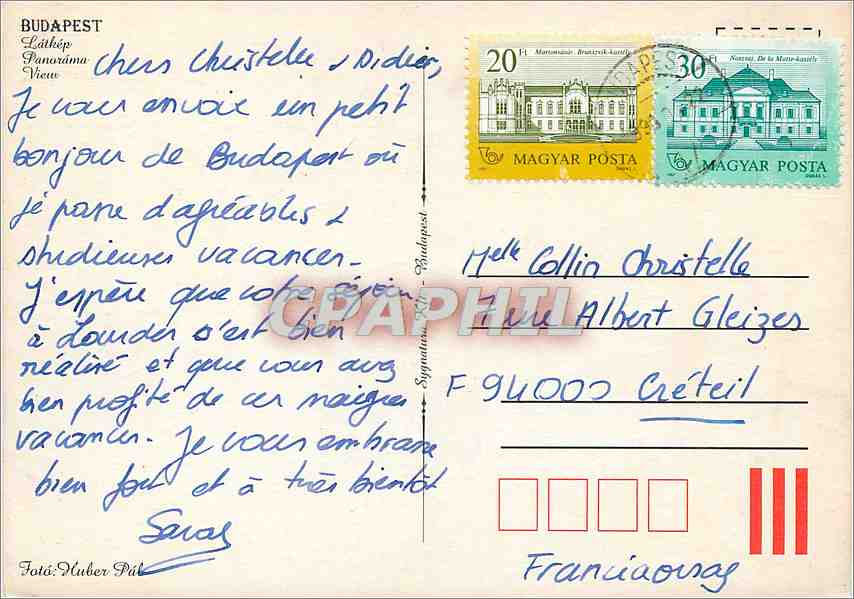 BUDAPEST
Látkép
Panoráma
View
Chers Christelle & Didier,
Je vous envoie un petit
bonjour de Budapest où
je passe d'agréables &
studieuses vacances.
J'espère que votre séjour
à Lourdes s'est bien
réalisé et que vous avez
bien profité de ces maigres
vacances. Je vous embrasse
bien fort et à très bientôt
Sarah
Fotó: Huber Pál
Sygnatura Kft. - Budapest
20 Ft
Martonvásár. Brunszvik-kastély
MAGYAR POSTA
30 Ft
Noszvaj. De la Motte-kastély
MAGYAR POSTA
BUDAPEST
CPAPHIL
Melle Collin Christelle
7 rue Albert Gleizes
F 94000 Créteil
Franciaorszag